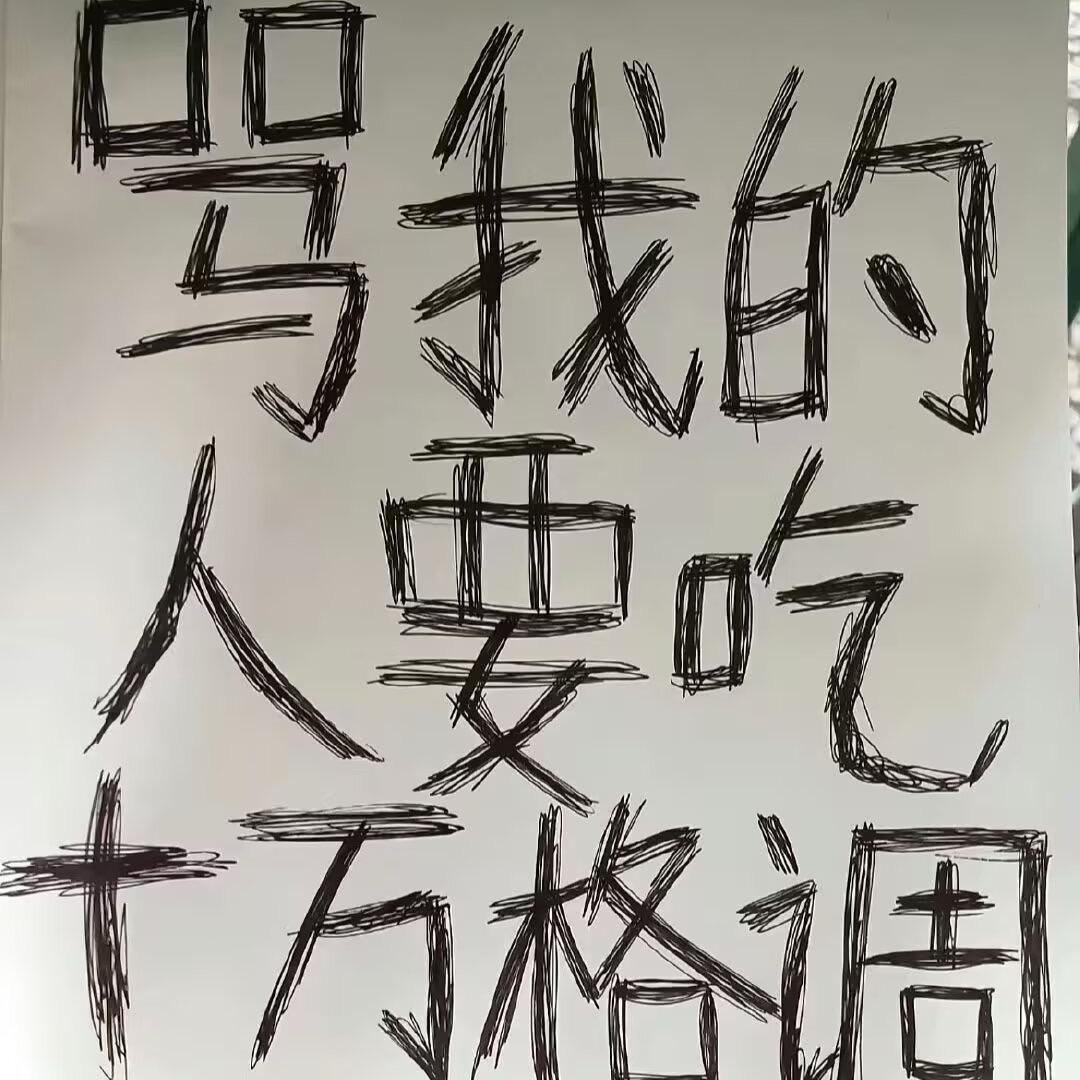 骂我的
人要吃
十万格调